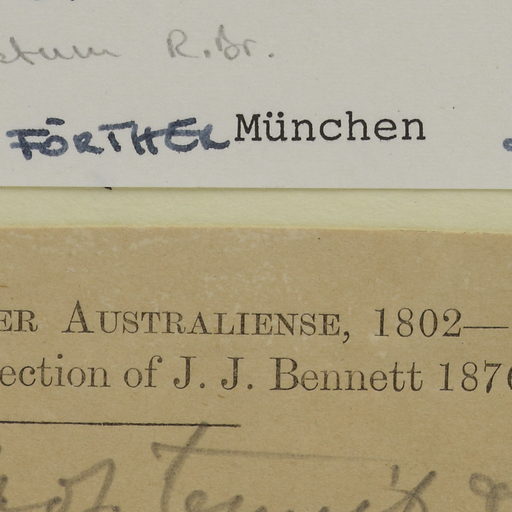 R.Br.
FÖRTHER München
ER AUSTRALIENSE, 1802—
ection of J. J. Bennett 1876